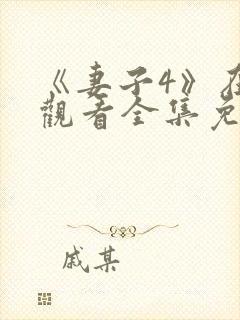 《妻子4》在
觀看全集免
戚某